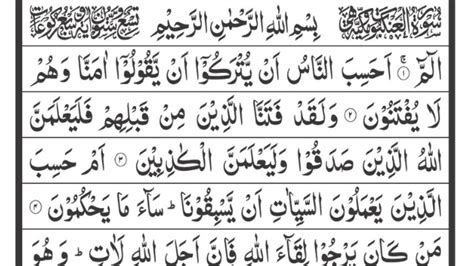 سورة العنكبوت مكية بسم الله الرحمن الرحيم
الٓمّٓ ۚ﴿۱﴾ اَحَسِبَ النَّاسُ اَنْ یُّتْرَكُوْۤا اَنْ یَّقُوْلُوْۤا اٰمَنَّا وَ هُمْ
لَا یُفْتَنُوْنَ ﴿۲﴾ وَ لَقَدْ فَتَنَّا الَّذِیْنَ مِنْ قَبْلِهِمْ فَلَیَعْلَمَنَّ
اللّٰهُ الَّذِیْنَ صَدَقُوْا وَ لَیَعْلَمَنَّ الْكٰذِبِیْنَ ﴿۳﴾ اَمْ حَسِبَ
الَّذِیْنَ یَعْمَلُوْنَ السَّیِّاٰتِ اَنْ یَّسْبِقُوْنَا ؕ سَآءَ مَا یَحْكُمُوْنَ ﴿۴﴾
مَنْ كَانَ یَرْجُوْا لِقَآءَ اللّٰهِ فَاِنَّ اَجَلَ اللّٰهِ لَاٰتٍ ؕ وَ هُوَ